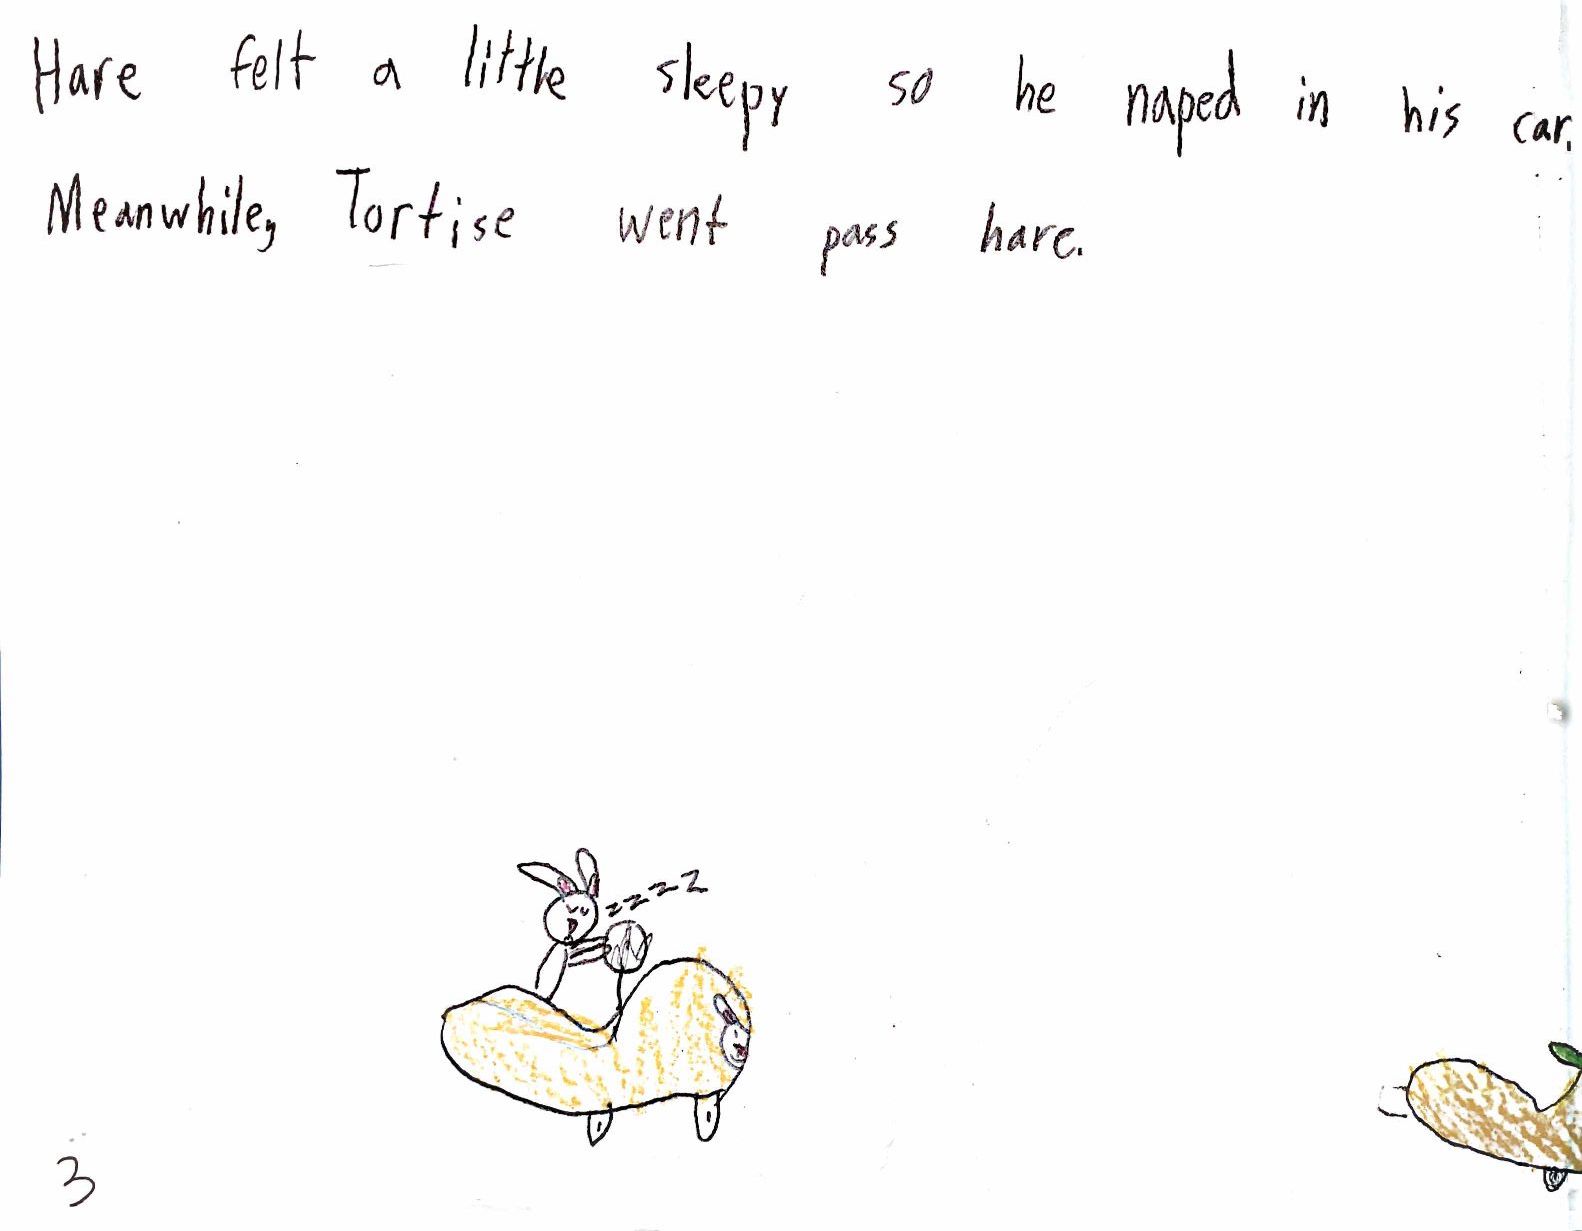 Hare felt a little sleepy so he naped in his car.
Meanwhile, Tortise went pass hare.
zzzz
3